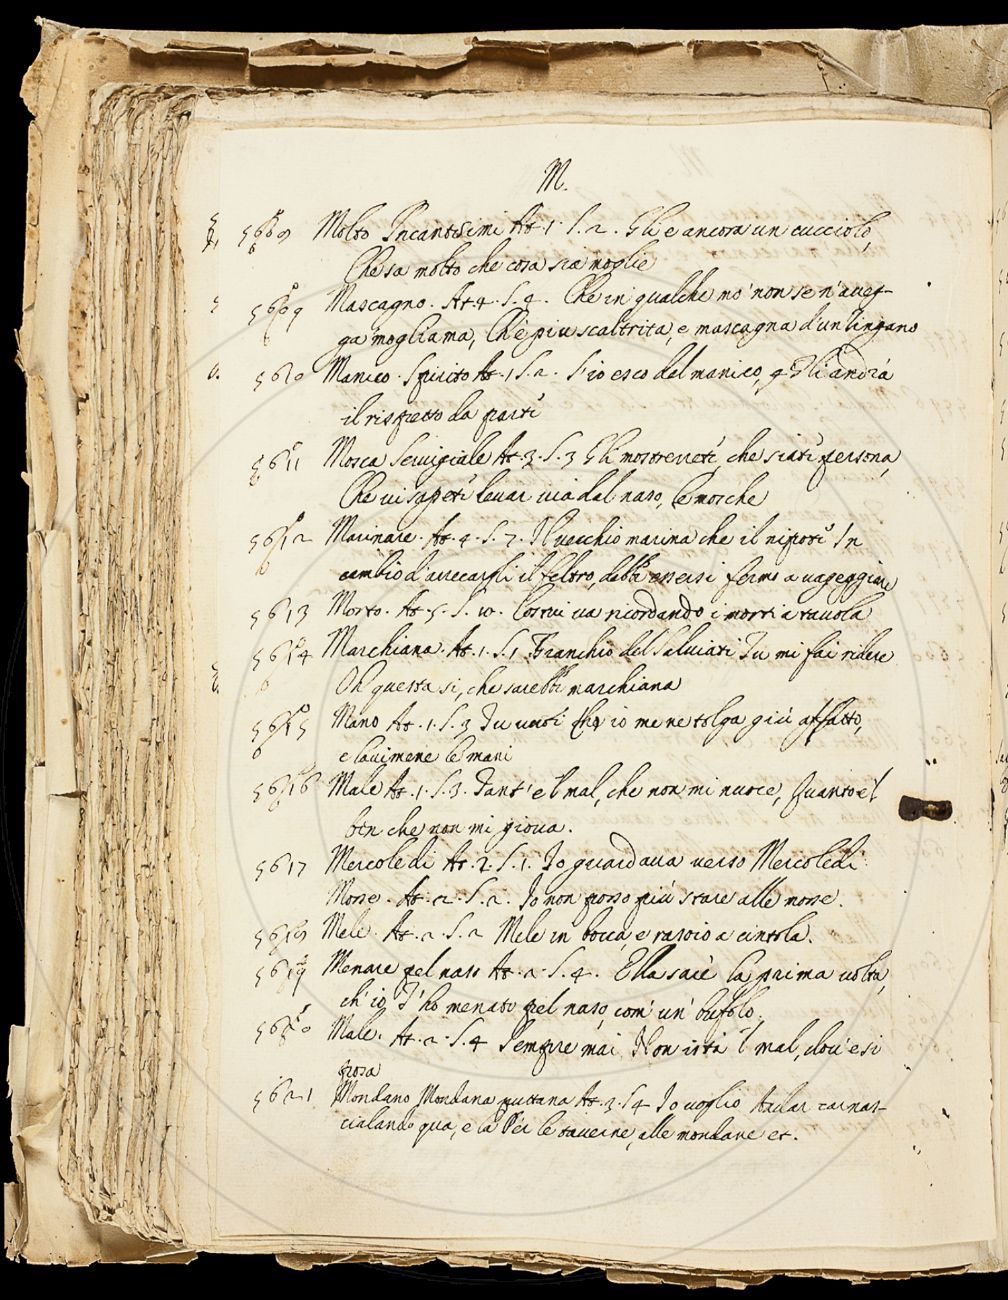 M.
Molto Incantesimi At. 1. S. 2. Gli e ancora un cucciolo,
Che sa molto che cosa sia moglie
Mascagno. At. 4. S. 4. Che in qualche mo' non se n'aveg-
ga mogliama, Ch'è piu scaltrita, e mascagna d'un Zingano
5610 Manico. Spirito At. 1 S. 2. S'io esco del manico, Gli andrà
il rispetto da parte
5611 Mosca Servigiale At. 3. S. 3 Gli mostrerrete, che siate persona,
Che vi sapete levar via dal naso, le mosche
5612 Marinare. At. 4. S. 7. Il vecchio marina che il nipote In
cambio d'arrecargli il feltro, debbi essersi fermo a vageggiare
5613 Morto. At. 5. S. 10. Costui va ricordando i morti a tavola
5614 Marchiana. At. 1. S. 1 Granchio del Salviati Tu mi fai ridere
Oh questa si, che sarebbe marchiana
5615 Mano At. 1. S. 3 Tu vuoi ch'io me ne tolga giù affatto,
e lavimene le mani
5616 Male At. 1. S. 3. Tant'è 'l mal, che non mi nuoce, Quanto è 'l
ben che non mi giova.
5617 Mercoledi At. 2. S. 1. Io guardava verso Mercoledi
Mosse. At. 2. S. 2. Io non posso più stare alle mosse.
5618 Mele. At. 2. S. 2 Mele in bocca, e rasoio a cintola.
5619 Menare pel naso At. 2. S. 4. Ella sare' la prima volta,
ch'io T'ho menato pel naso, com' un' bufolo.
5620 Male. At. 2. S. 4 Sempre mai Non istà 'l mal, dov' e si
posa
5621 Mondano Mondana puttana At. 3. S 4 Io voglio Andar carnas-
cialando qua, e là Per le taverne, alle mondane et.